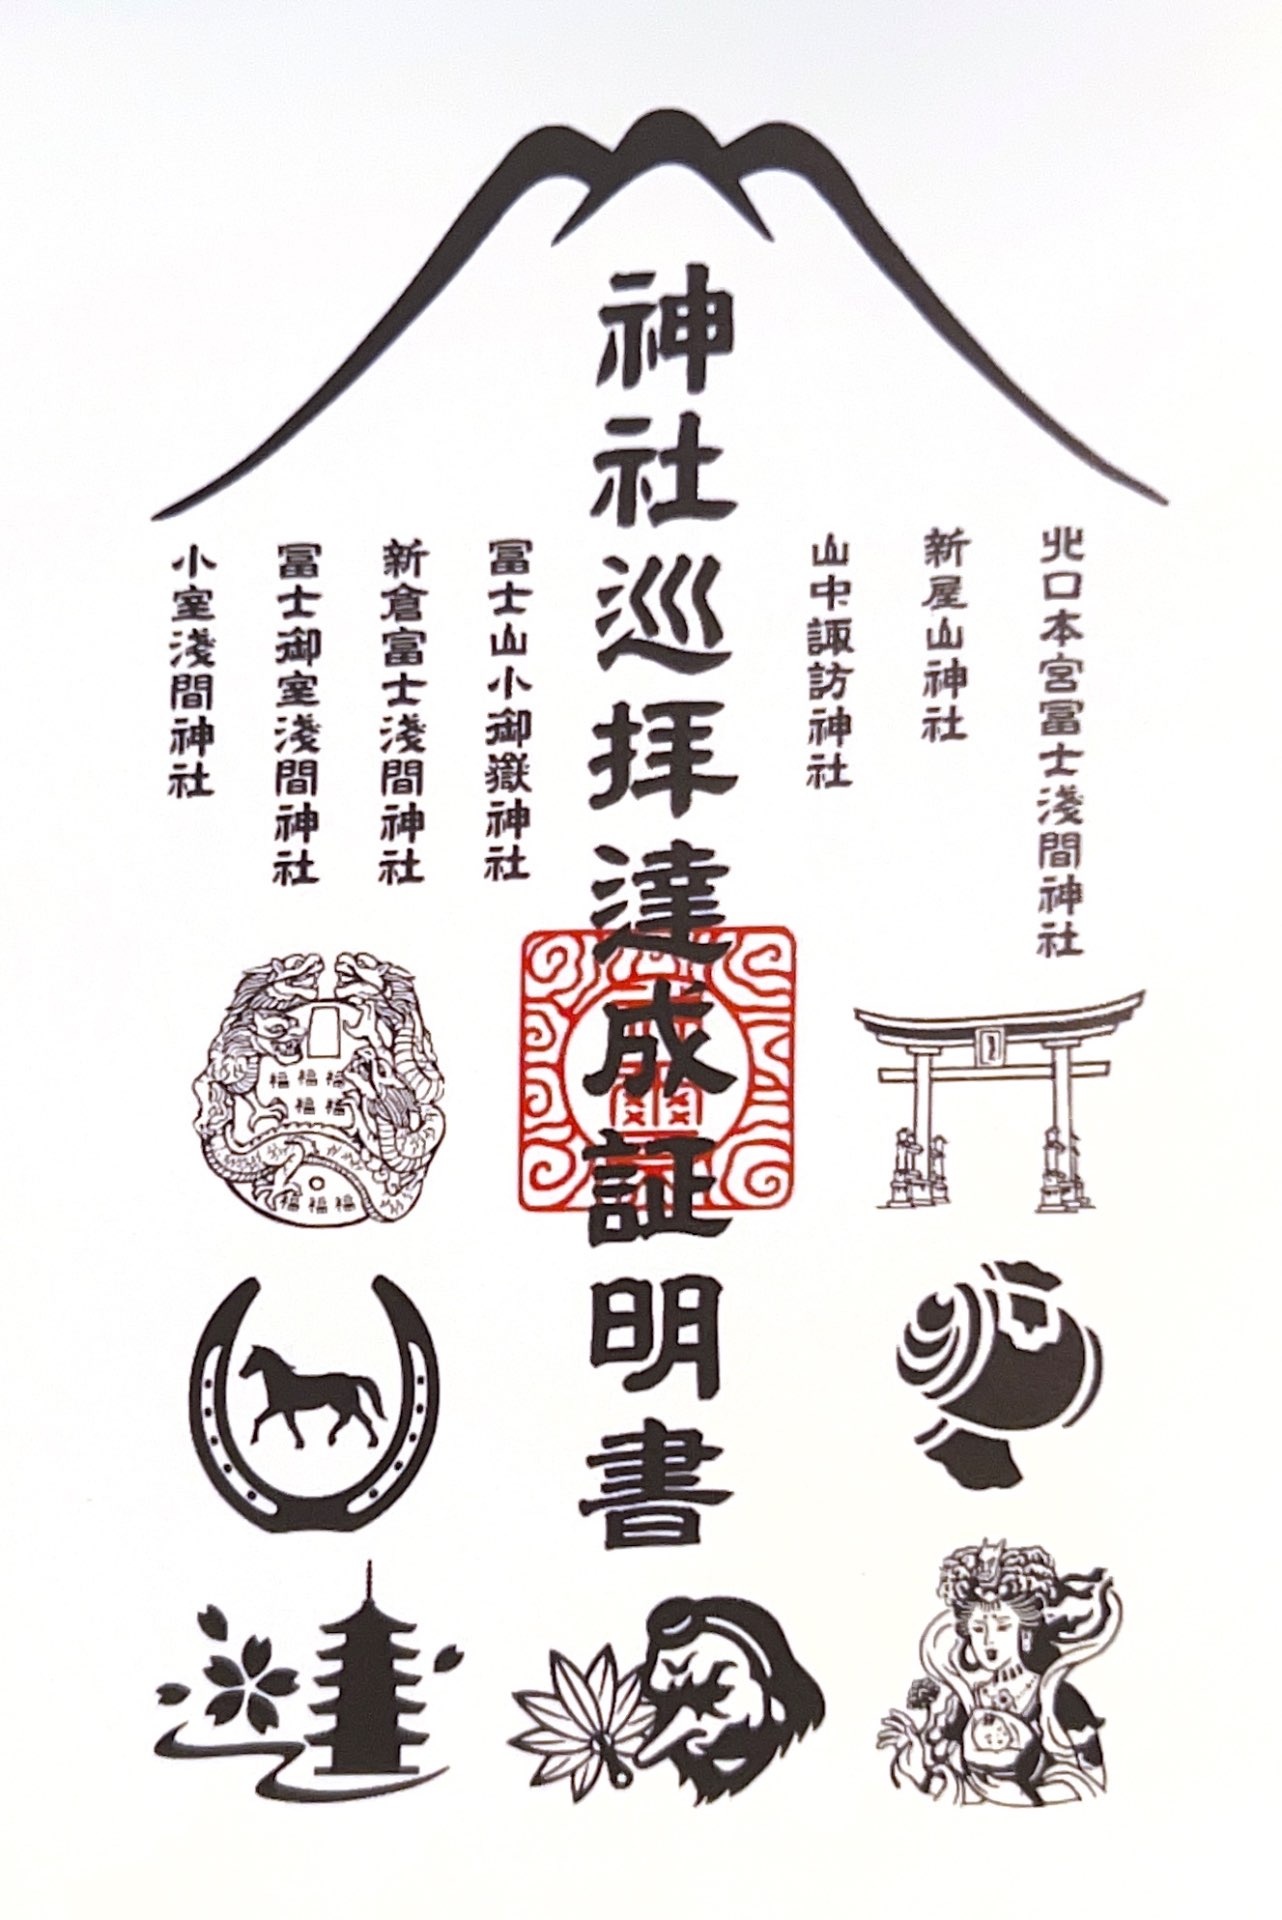 北口本宮冨士淺間神社
新屋山神社
山中諏訪神社
神社巡拝達成証明書
冨士山小御嶽神社
新倉富士淺間神社
冨士御室淺間神社
小室淺間神社
福福福
福福
福福福